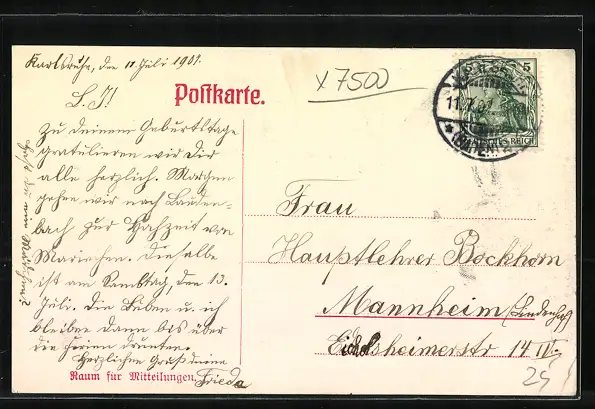 Karlsruhe, den 11 Juli 1907.
L. J!
Zu deinem Geburtstage
gratulieren wir dir
alle herzlich. Morgen
gehen wir nach Lauden-
bach zur Hohzeit von
Mariechen. Dieselbe
ist am Samstag, den 13.
Juli. Die Buben u. ich
bleiben dann bis über
die Ferien drunten.
Herzlichen Gruß deine
Frieda
Raum für Mitteilungen.
Postkarte.
x 7500
5
11.7.07
(BADEN)
REICH
Frau
Hauptlehrer Bockhorn
Mannheim (Lindenhof)
Eichelsheimerstr 14 IV
25